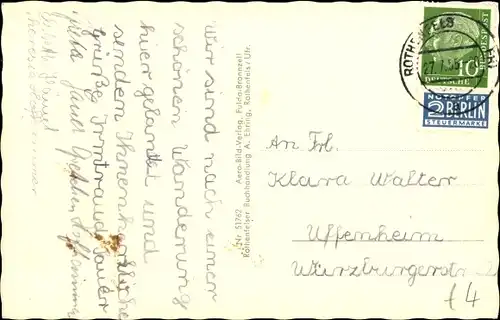 Wir sind nach einer
schönen Wanderung
hier gelandet und
senden Ihnen herzliche
Grüße Irmtraud Sauer
Nr. 51762 Aero-Bild-Verlag, Fulda-Bronnzell
Rothenfelser Buchhandlung A. Ehring, Rothenfels / Ufr.
ROTHENFELS
DEUTSCHE
BUNDESPOST
10
NOTOPFER
2 BERLIN
STEUERMARKE
An Frl.
Klara Walter
Uffenheim
Würzburgerstr.